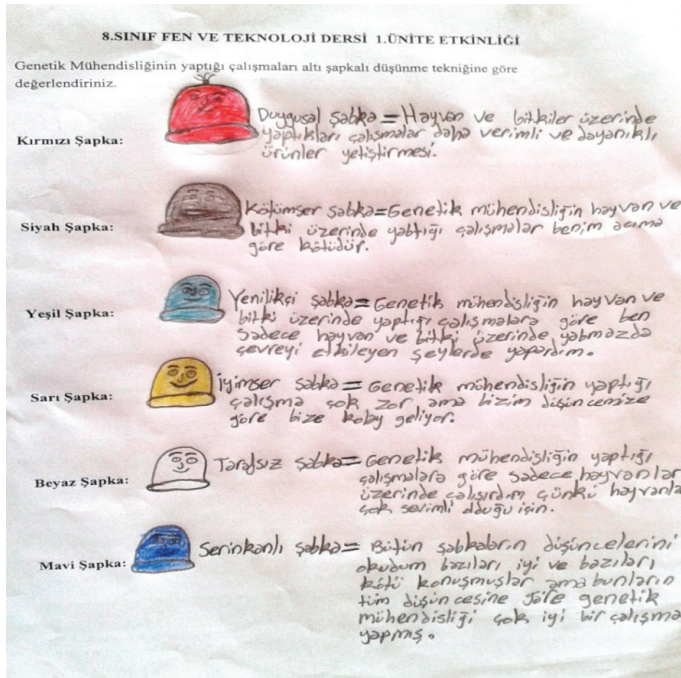 8.SINIF FEN VE TEKNOLOJİ DERSİ 1.ÜNİTE ETKİNLİĞİ
Genetik Mühendisliğinin yaptığı çalışmaları altı şapkalı düşünme tekniğine göre
değerlendiriniz.
Kırmızı Şapka:
Duygusal şabka = Hayvan ve bitkiler üzerinde
yaptıkları çalışmalar daha verimli ve dayanıklı
ürünler yetiştirmesi.
Siyah Şapka:
Kötümser şabka = Genetik mühendisliğin hayvan ve
bitki üzerinde yabtığı çalışmalar benim acıma
göre kötüdür.
Yeşil Şapka:
Yenilikçi şabka = Genetik mühendisliğin hayvan ve
bitki üzerinde yaptığı çalışmalara göre ben
sadece hayvan ve bitki üzerinde yabmazda
çevreyi etkileyen şeylerde yapardım.
Sarı Şapka:
İyimser şabka = Genetik mühendisliğin yaptığı
çalışma çok zor ama bizim düşüncemize
göre bize kolay geliyor.
Beyaz Şapka:
Tarafsız şabka = Genetik mühendisliğin yaptığı
çalışmalara göre sadece hayvanlar
üzerinde çalışırdım çünkü hayvanla
çok sevimli olduğu için.
Mavi Şapka:
Serinkanlı şabka = Bütün şabkaların düşüncelerini
okudum bazıları iyi ve bazıları
kötü konuşmuşlar ama bunların
tüm düşüncesine göre genetik
mühendisliği çok iyi bir çalışma
yapmış.